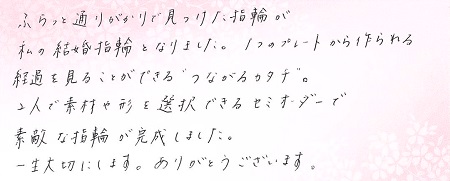 ふらっと通りがかりで見つけた指輪が
私の結婚指輪となりました。1つのプレートから作られる
経過を見ることができる"つながるカタチ"。
2人で素材や形を選択できるセミオーダーで
素敵な指輪が完成しました。
一生大切にします。ありがとうございます。